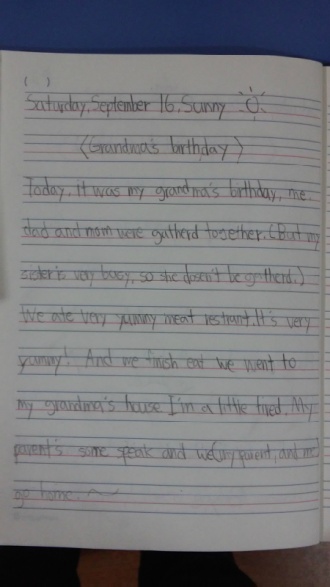 ( )
Saturday, September 16, Sunny
<Grandma's birthday>
Today, it was my grandma's birthday, me,
dad and mom were gatherd together. (But my
sister is very busy, so she doesn't be gatherd.)
We ate very yummy meat restrant. It's very
yummy! And we finish eat we went to
my grandma's house I'm a little tired. My
parent's some speak and we(my parent, and me)
go home. ~